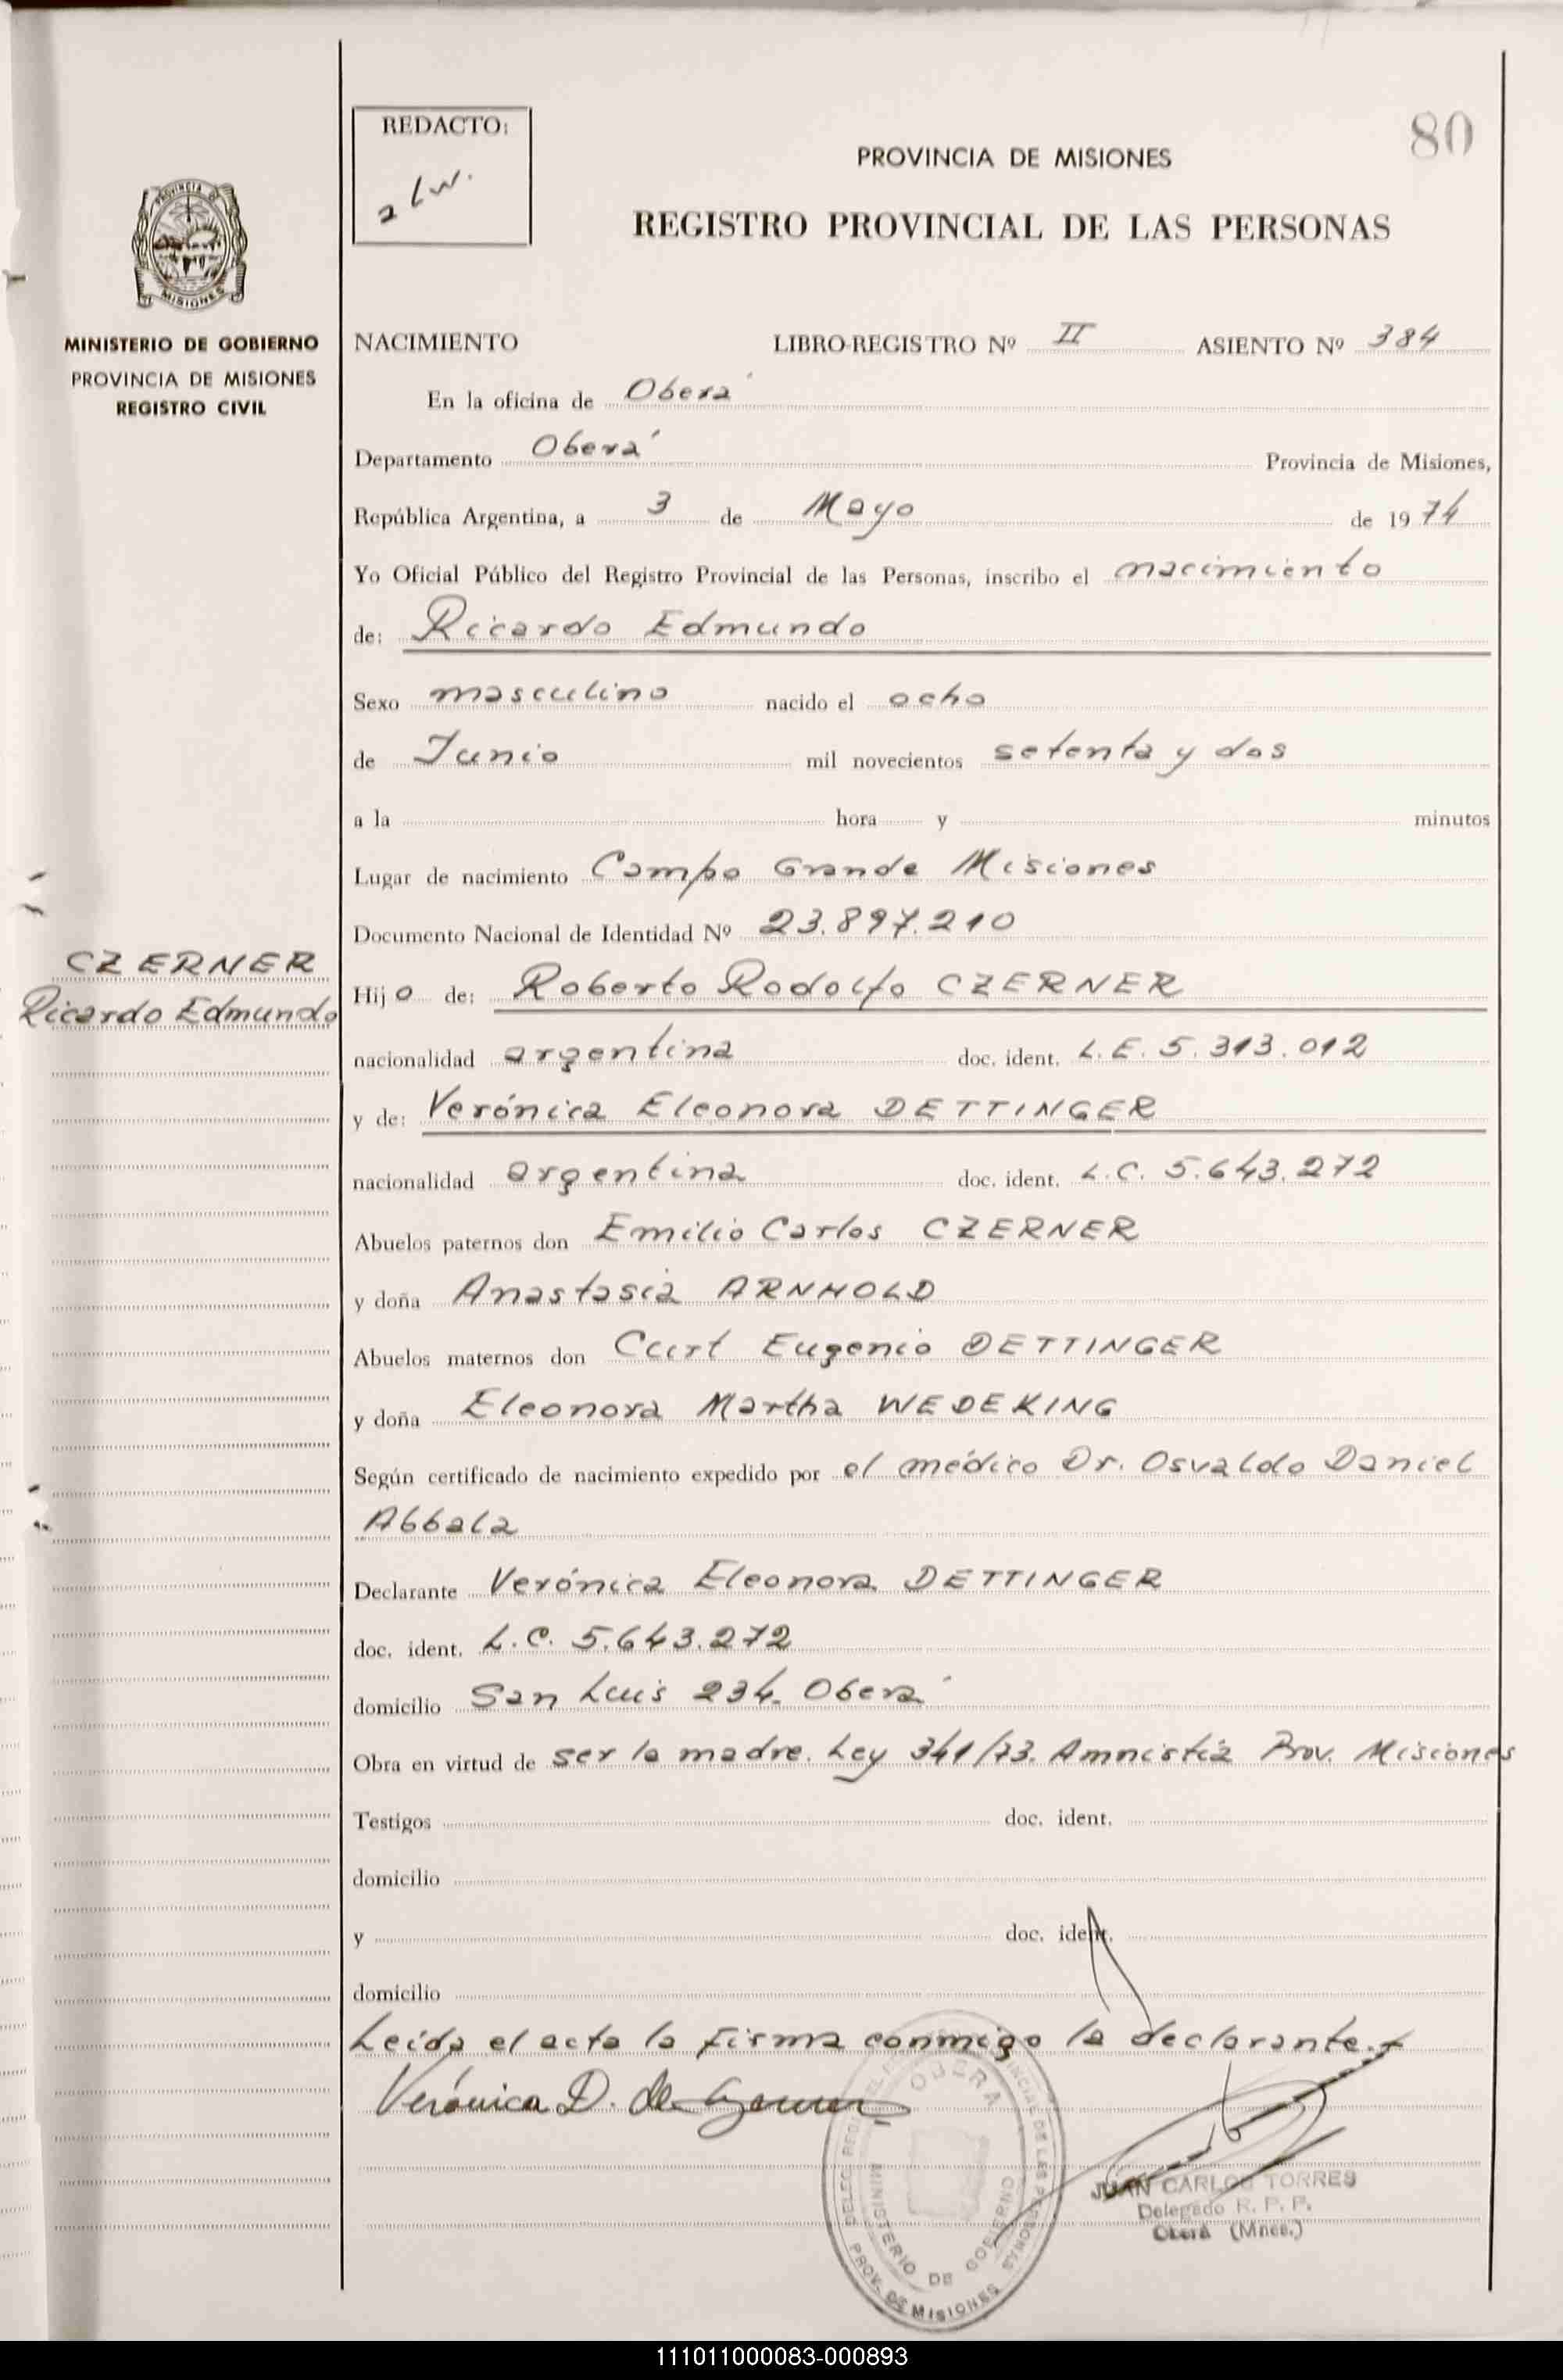 80
REDACTO:
PROVINCIA DE MISIONES
REGISTRO PROVINCIAL DE LAS PERSONAS
PROVINCIA DE
MISIONES
MINISTERIO DE GOBIERNO
PROVINCIA DE MISIONES
REGISTRO CIVIL
NACIMIENTO LIBRO-REGISTRO Nº II ASIENTO Nº 384
En la oficina de Oberá
Departamento Oberá Provincia de Misiones,
República Argentina, a 3 de Mayo de 1974
Yo Oficial Público del Registro Provincial de las Personas, inscribo el nacimiento
de: Ricardo Edmundo
Sexo masculino nacido el ocho
de Junio mil novecientos setenta y dos
a la hora y minutos
Lugar de nacimiento Campo Grande Misiones
Documento Nacional de Identidad Nº 23.897.210
CZERNER
Ricardo Edmundo
Hijo de: Roberto Rodolfo CZERNER
nacionalidad argentina doc. ident. L.E. 5.313.012
y de: Verónica Eleonora DETTINGER
nacionalidad argentina doc. ident. L.C. 5.643.272
Abuelos paternos don Emilio Carlos CZERNER
y doña Anastasia ARNHOLD
Abuelos maternos don Curt Eugenio DETTINGER
y doña Eleonora Martha WEDEKING
Según certificado de nacimiento expedido por el médico Dr. Osvaldo Daniel
Abbala
Declarante Verónica Eleonora DETTINGER
doc. ident. L.C. 5.643.272
domicilio San Luis 234. Oberá
Obra en virtud de ser la madre. Ley 341/73. Amnistia Prov. Misiones
Testigos doc. ident.
domicilio
y doc. ident.
domicilio
Leida el acta la firma conmigo la declarante.
Verónica D. de Czerner
OBERA
MINISTERIO DE GOBIERNO
PROV. DE MISIONES
JUAN CARLOS TORRES
Delegado R. P. P.
Oberá (Mnes.)
111011000083-000893